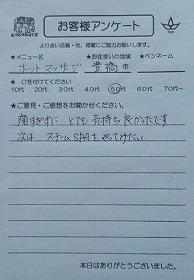 お客様アンケート
より良い品質・地、搭載にご協力お願いします。
★メニュー名 ★お住まいの地域 ★ペンネーム
ホットマッサージ 豊橋市
★ ○を付けてください
10代 20代 30代 40代 50代 60代 70代～
★ご意見・ご感想をお聞かせください。
痛すぎずに とても 気持ち良かったです
次は スチームSPAを やってみたい
本日はありがとうございました。